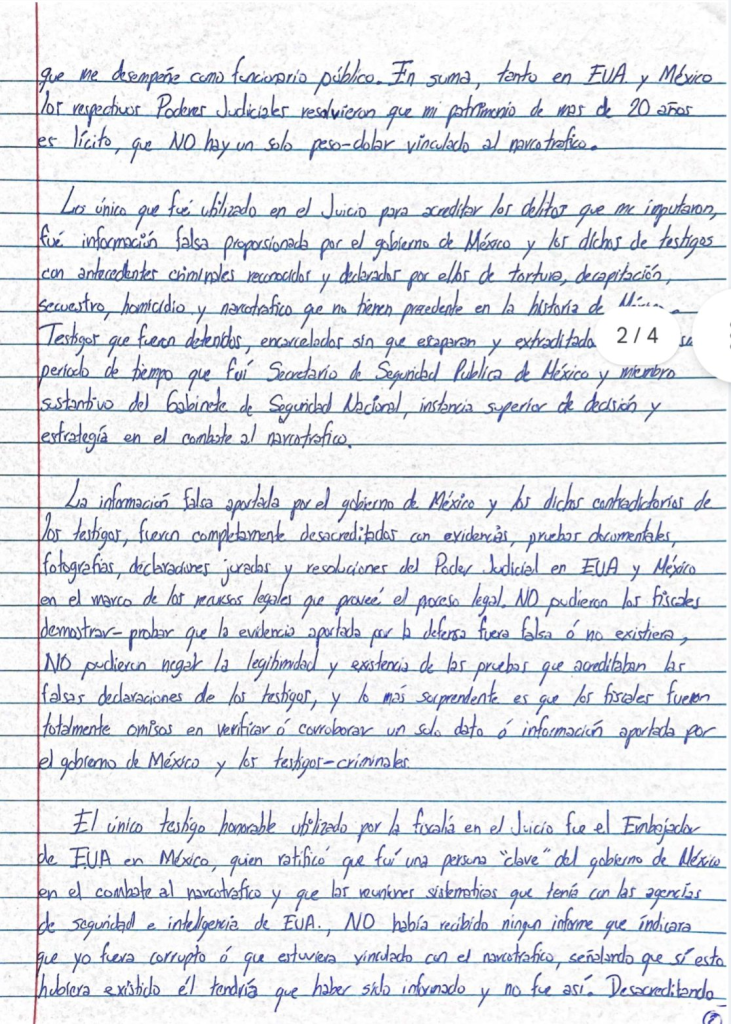 que me desempeñe como funcionario público. En suma, tanto en EUA y México
los respectivos Poderes Judiciales resolvieron que mi patrimonio de mas de 20 años
es lícito, que NO hay un solo peso-dolar vinculado al narcotrafico.
Los único que fué utilizado en el Juicio para acreditar los delitos que me imputaron,
fué información falsa proporcionada por el gobierno de México y los dichos de testigos
con antecedentes criminales reconocidos y declarados por ellos de tortura, decapitación,
secuestro, homicidio y narcotrafico que no tienen precedente en la historia de
Testigos que fueron detenidos, encarcelados sin que escaparan y
2/4
periodo de tiempo que fuí Secretario de Seguridad Publica de México y miembro
sustantivo del Gabinete de Seguridad Nacional, instancia superior de decisión y
estrategía en el combate al narcotrafico.
La información falsa aportada por el gobierno de México y los dichos contradictorios de
los testigos, fueron completamente desacreditados con evidencias, pruebas documentales,
fotografias, declaraciones juradas y resoluciones del Poder Judicial en EUA y México
en el marco de los recursos legales que proveé el proceso legal. NO pudieron los fiscales
demostrar-probar que la evidencia aportada por la defensa fuera falsa ó no existiera,
NO pudieron negar la legitimidad y existencia de las pruebas que acreditaban las
falsas declaraciones de los testigos, y lo más sorprendente es que los fiscales fueron
totalmente omisos en verificar ó corroborar un solo dato ó información aportada por
el gobierno de México y los testigos-criminales
El único testigo honorable utilizado por la fiscalia en el Juicio fue el Embajador
de EUA en México, quien ratificó que fuí una persona "clave" del gobierno de México
en el combate al narcotrafico y que las reuniones sistematicas que tenía con las agencias
de seguridad e inteligencia de EUA., NO había recibido ningun informe que indicara
que yo fuera corrupto ó que estuviera vinculado con el narcotrafico, señalando que sí esto
hubiera existido él tendría que haber sido informado y no fue así. Desacreditando